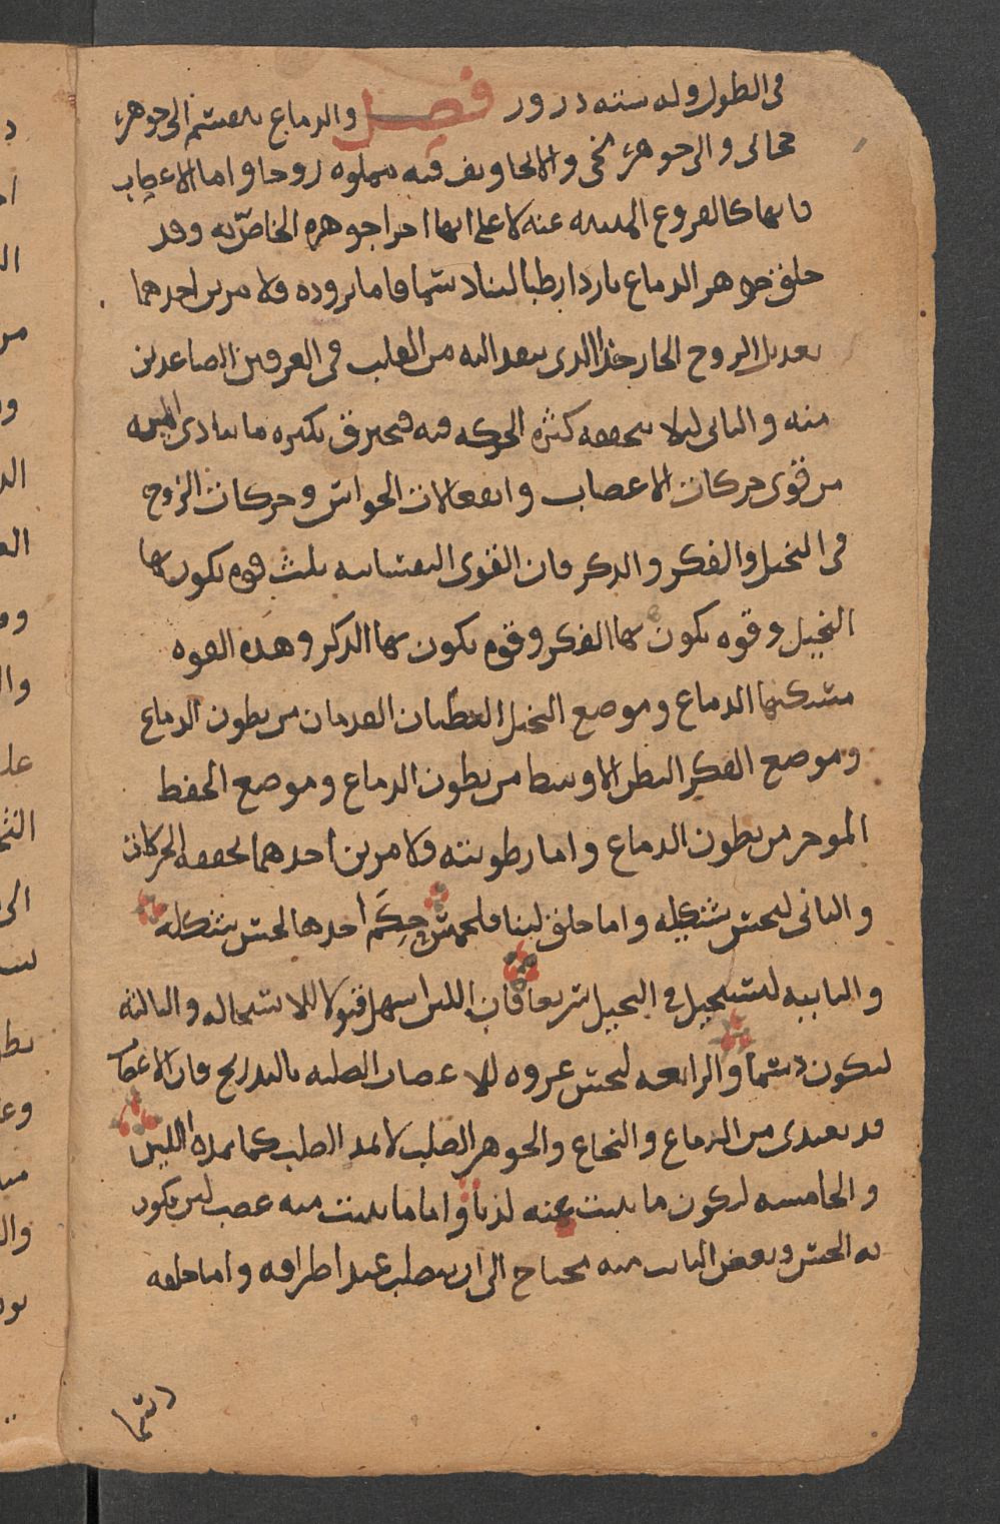 في الطول وله ستة دروز فصل والدماغ ينقسم الى جوهر
حجابي والى جوهر مخي والى تجاويف فيه مملوه روحا واما الاعصاب
فانها كالفروع المنبثه عنه لا على انها اجزا جوهره الخاص به وقد
خلق جوهر الدماغ باردا رطبا لينا دسما فاما بروده فلامرين احدهما
تعديل الروح الحار جدا الذي ينفد اليه من القلب في العرقين الصاعدين
منه والثاني ليلا يجففه كثره الحركه فيه فيحترق بكثره ما يتادى اليه
من قوى حركات الاعصاب وانفعالات الحواس وحركات الروح
في التخيل والفكر والذكر فان القوى النفسانيه ثلث قوه يكون بها
التخيل وقوه يكون بها الفكر وقوه يكون بها الذكر وهذه القوه
مسكنها الدماغ وموضع التخيل البطنان المقدمان من بطون الدماغ
وموضع الفكر البطن الاوسط من بطون الدماغ وموضع الحفظ
الموخر من بطون الدماغ واما رطوبته فلامرين احدهما تجففه الحركات
والثاني ليحسن تشكيله واما خلق لينا فلخمس حكم احدها لحسن تشكله
والثانيه ليستحيل في التخيل سريعا فان اللين اسهل قبولا للاستحاله والثالثه
ليكون دسما والرابعه ليحسن غروه للاعصاب الصلبه بالتدريج فان الاعصاب
قد تغتدى من الدماغ والنخاع والجوهر الصلب لا يمد الصلب كما يمده اللين
والخامسه ليكون ما ينبت عنه لدنا واما ما ينبت منه عصب لين يكون
به الحس وبعض النابت منه يحتاج الى ان يتصلب عند اطرافه واما خلقه
دسما